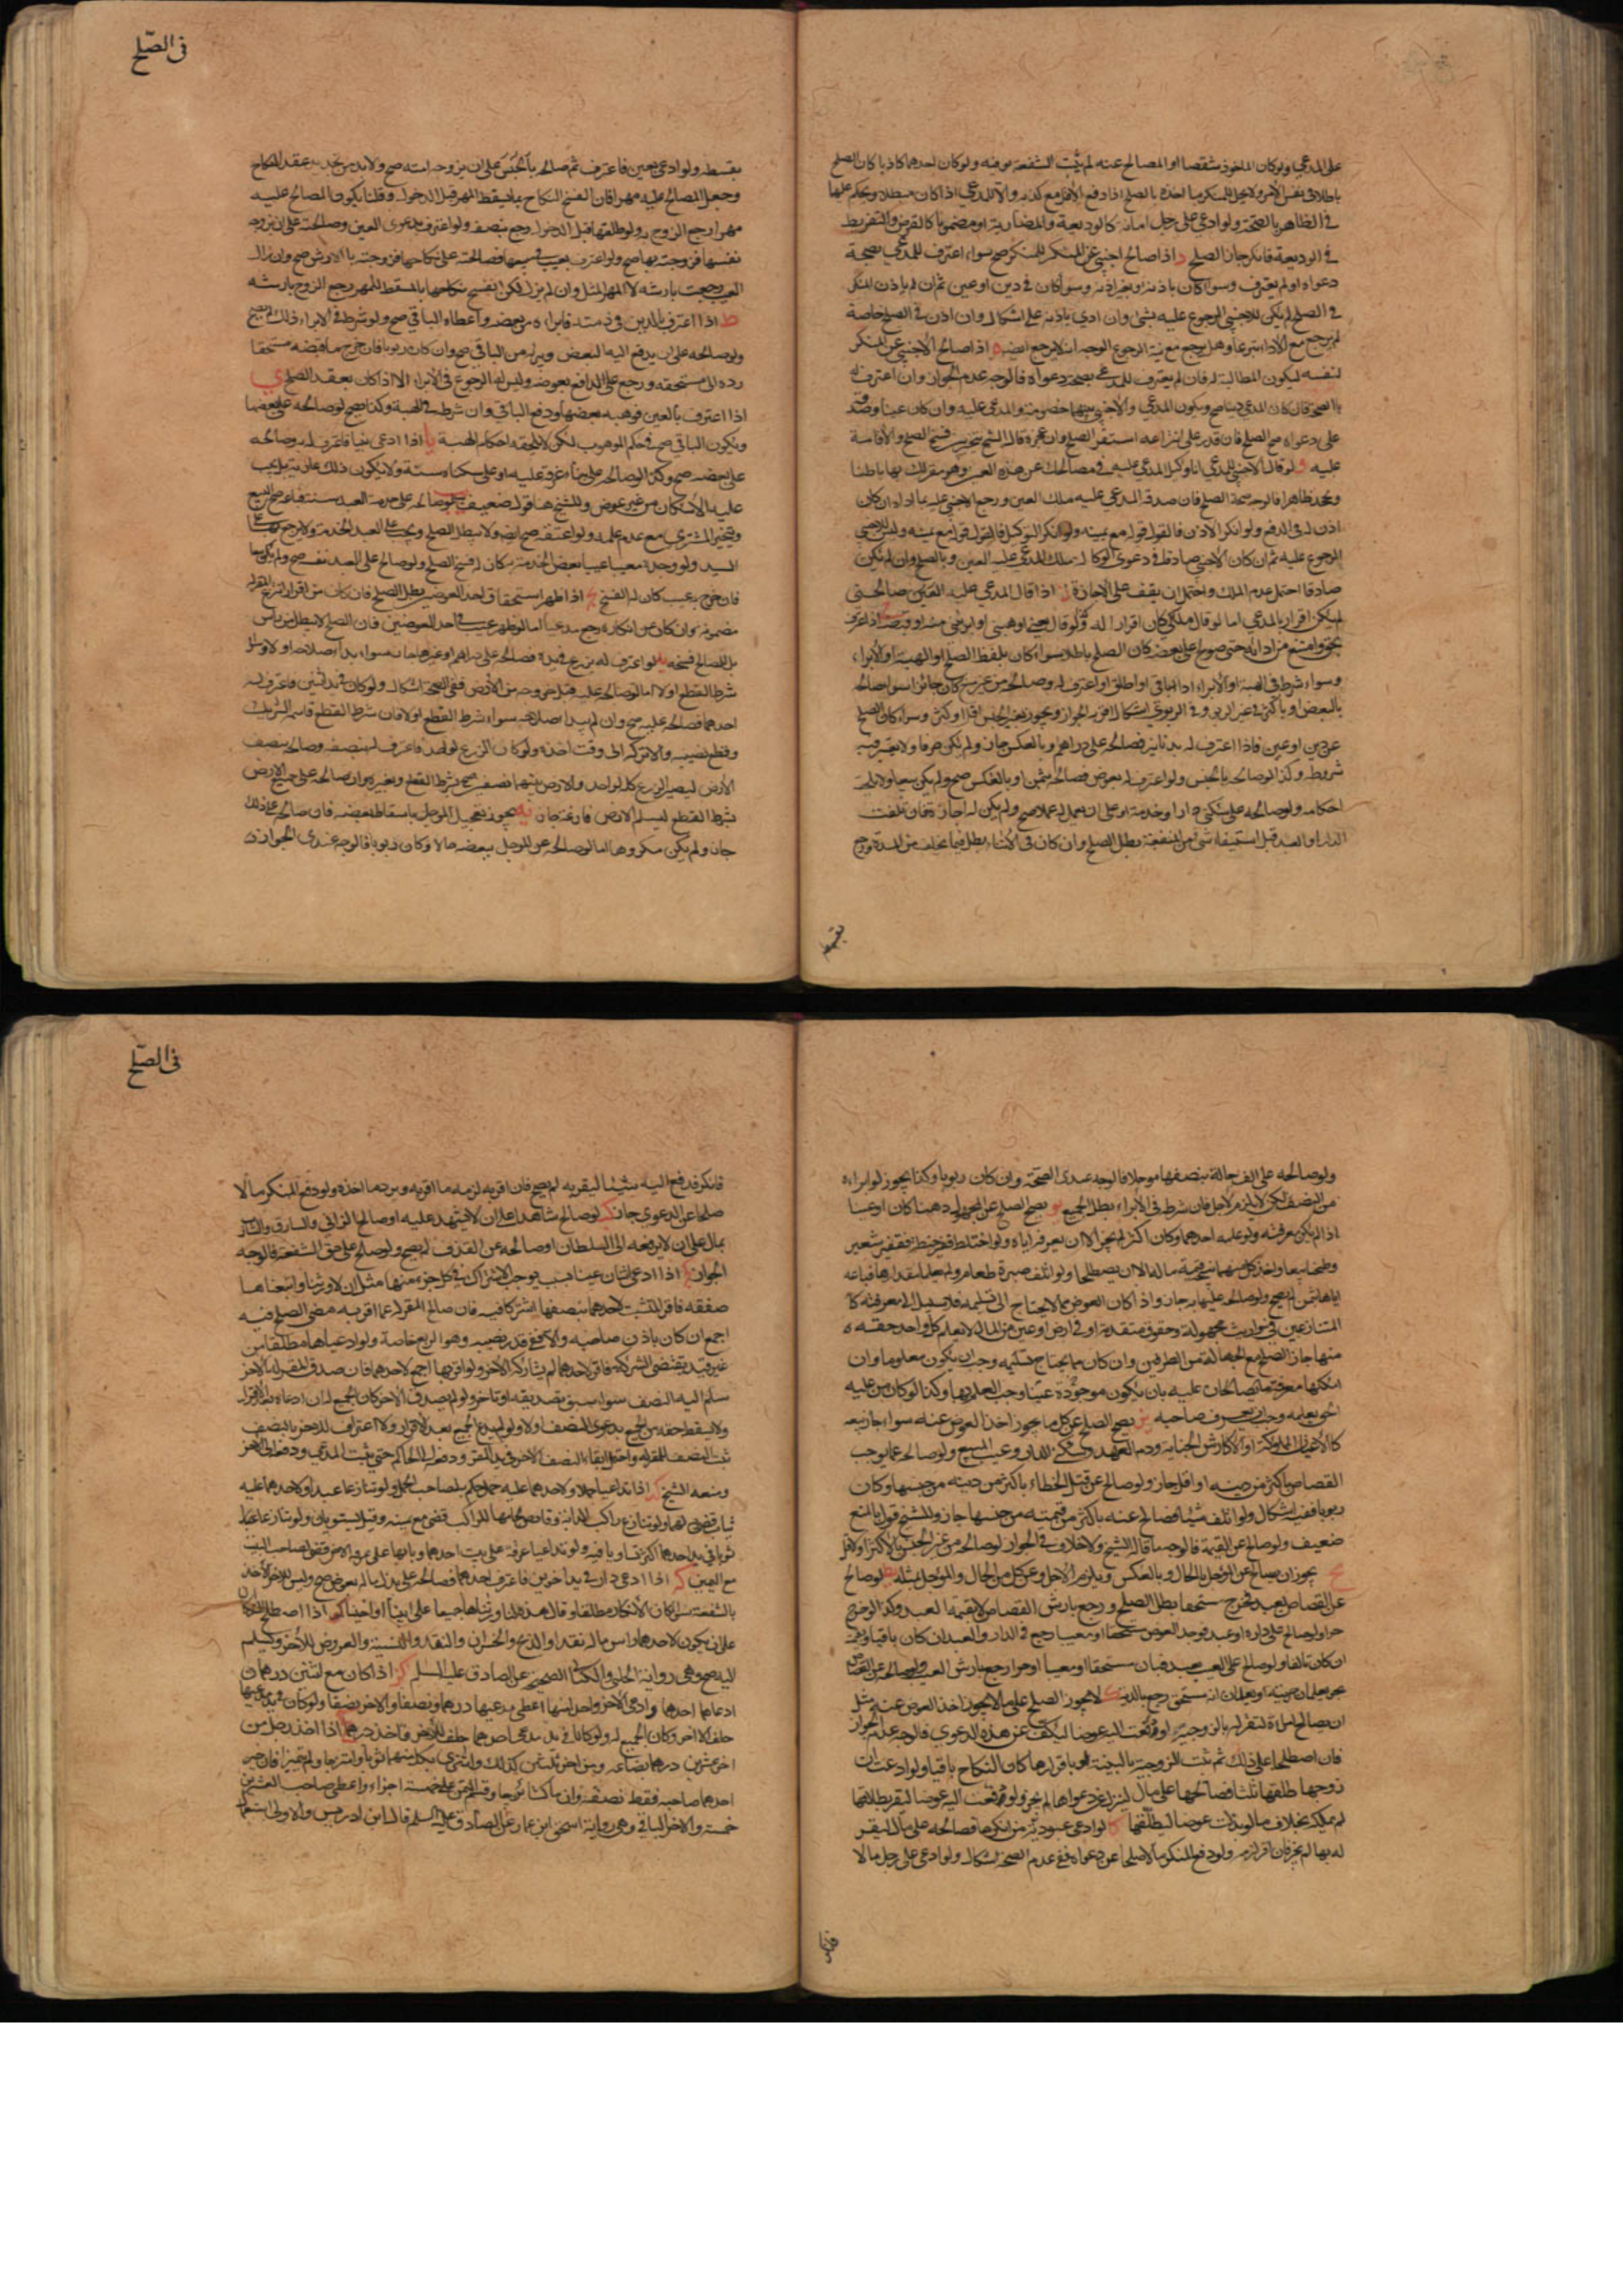 على المدعي ولو كان الماخوذ شقصا او المصالح عنه لم يثبت الشفعة فيه ولو كان احدهما كاذبا كان الصلح
باطلا في نفس الامر ولا يحل للمنكر ما اخذه بالصلح اذا دفع الاقل مع كذبه ولا للمدعي اذا كان مبطلا ويحكم عليها
في الظاهر بالصحة ولو ادعى على رجل امانة كالوديعة والمضاربة او مضمونا كالقرض والتفريط
في الوديعة فانكر جاز الصلح د اذا صالح اجنبي عن المنكر للمنكر صح سواء اعترف للمدعي بصحة
دعواه او لم يعترف وسواء كان باذنه او بغير اذنه وسواء كان في دين او عين ثم ان لم ياذن المنكر
في الصلح لم يكن للاجنبي الرجوع عليه بشئ وان ادي باذنه على اشكال وان اذن في الصلح خاصة
لم يرجع مع الاداء تبرعا وهل يرجع مع نية الرجوع الوجه انه لا يرجع ايضا ه اذا صالح الاجنبي عن المنكر
لنفسه ليكون المطالبة له فان لم يعترف للمدعي بصحة دعواه فالوجه عدم الجواز وان اعترف له
بالصحة فان كان المدعي دينا صح ويكون المدعي والاجنبي بينهما خصومة والمدعى عليه وان كان عينا وصدقه
على دعواه صح الصلح فان قدر على انتزاعه استقر الصلح وان عجز قال الشيخ تخير بين فسخ الصلح والاقامة
عليه و لو قال الاجنبي للمدعي انا وكيل المدعى عليه في مصالحتك عن هذه العين وهو مقر لك بها باطنا
ويجحد ظاهرا فالوجه صحة الصلح فان صدقه المدعى عليه ملك العين ورجع الاجنبي عليه بما اداه ان كان
اذن له في الدفع ولو انكر الاذن فالقول قوله مع يمينه ولو انكر التوكيل فالقول قوله مع يمينه وليس للاجنبي
الرجوع عليه ثم ان كان الاجنبي صادقا في دعوى الوكالة ملك المدعى عليه العين وبالصلح وان لم يكن
صادقا احتمل عدم الملك واحتمل ان يقف على الاجازة ز اذا قال المدعى عليه العين صالحني
لم يكن اقرارا للمدعي اما لو قال ملكني كان اقرارا له وكذا لو قال بعني او هبني او ابرئني منه او قبضته ح اذا اعترف
بحق وامتنع من ادائه حتى صولح على بعضه كان الصلح باطلا سواء كان بلفظ الصلح او الهبة او الابراء
وسواء شرط في الهبة او الابراء اداء الباقي او اطلق او اعترف له وصالحه من غير منع كان جائزا سواء صالحه
بالبعض او باكثر في غير الربوي وفي الربوي اشكال اقربه الجواز ويجوز بغير الجنس اقل او اكثر وسواء كان الصلح
عن دين او عين فاذا اعترف له بدنانير فصالحه على دراهم او بالعكس جاز ولم يكن صرفا ولا يعتبر فيه
شروطه وكذا لو صالحه بالجنس ولو اعترف له بعوض فصالحه بثمن او بالعكس صح ولم يكن بيعا ولا يلحقه
احكامه ولو صالحه على سكنى دار او خدمة او على ان يعمل له عملا صح ولم يكن له اجارة فان تلفت
الدار او العبد قبل استيفاء شئ من المنفعة بطل الصلح وان كان في الاثناء بطل فيما تخلف من المدة ورجع
بقسطه
في الصلح
بقسطه ولو ادعى بعين فاعترف ثم صالحه بالجنس على ان يزوجه امته صح ولا بد من تجديد عقد النكاح
وجعل المصالح عليه مهرا فان انفسخ النكاح بما يسقط المهر قبل الدخول وقلنا يكون المصالح عليه
مهرا رجع الزوج به ولو طلقها قبل الدخول رجع بنصفه ولو اعترف بدعوى العين وصالحته على ان يزوجه
نفسها فزوجته بها صح ولو اعترف بعيب في مبيعها فصالحته على نكاحها فزوجته بالارش صح وان زال
العيب رجعت بارشه لا المهر المثل وان لم يزل لكن انفسخ نكاحها بالمسقط للمهر رجع الزوج بارشه
ط اذا اعترف بالدين في ذمته فابراه من بعضه واعطاه الباقي صح ولو شرط في الابراء ذلك لم يصح
ولو صالحه على ان يدفع اليه البعض ويبرئه من الباقي صح وان كان ربويا فان خرج ما قبضه مستحقا
رده الى مستحقه ورجع على الدافع بعوضه وليس له الرجوع في الابراء الا اذا كان بعقد الصلح ي
اذا اعترف بالعين فوهبه بعضها ودفع الباقي وان شرط في الهبة وكذا يصح لو صالحه على بعضها
ويكون الباقي صح في حكم الموهوب لكن لا يلحقه احكام الهبة يا اذا ادعى بيتا فاعترف له به وصالحه
على بعضه صح وكذا لو صالحه على بناء غرفة عليه او على سكناه سنة ولا يكون ذلك عارية بل يجب
عليه الاسكان من غير عوض وللشيخ هنا قول ضعيف يب لو صالحه على خدمة العبد سنة فباعه صح البيع
ويتخير المشتري مع عدم علمه ولو اعتقه صح ايضا ولا يبطل الصلح ويجب على العبد الخدمة ولا يرجع بها على
السيد ولو وجده معيبا عيبا بعض الخدمة كان له فسخ الصلح ولو صالح على العبد نفسه صح ولم يكن بيعا
فان خرج به عيب كان له الفسخ يج اذا ظهر استحقاق احد العوضين بطل الصلح فان كان من اقرار انتزع المقر له
مضمونه وان كان عن انكاره رجع مدعيا اما لو ظهر عيب في احد العوضين فان الصلح لا يبطل من راس
بل للمصالح فسخه يد لو اعترف له بزرع في يده فصالحه على دراهم او غيرها جاز سواء بدا صلاحه او لا وسواء
شرط القطع او لا اما لو صالحه عليه قبل خروجه من الارض ففي الصحة اشكال ولو كان في يد اثنين فاعترف له
احدهما فصالحه عليه صح وان لم يبد صلاحه سواء شرط القطع او لا فان شرط القطع قاسم الشريك
وقطع نصيبه والا تركه الى وقت اخذه ولو كان الزرع لواحد فاعترف له بنصفه وصالحه بنصف
الارض ليصير الزرع كله لواحد والارض بينهما نصف صح بشرط القطع وبغيره وان صالحه على جميع الارض
بشرط القطع ليسلم الارض فارغة جاز يه يجوز تعجيل المؤجل باسقاط بعضه فان صالحه على ذلك
جاز ولم يكن مكروها اما لو صالحه عن المؤجل ببعضه حالا وكان ربويا فالوجه عندي الجواز
ولو صالحه على الف حالة بنصفها مؤجلا فالوجه عندي الصحة وان كان ربويا وكذا يجوز لو ابراءه
من النصف لكن لا يلزم الاجل فان شرط في الابراء بطل الجميع يو يصح الصلح عن المجهول دينا كان او عينا
اذا لم يكن معرفته ولو علمه احدهما وكان اكثر لم يجز الا ان يعرفه اياه ولو اختلط قفيز حنطة بقفيز شعير
وطحنا بيعا واخذ كل منهما بقيمة ماله الا ان يصطلحا ولو اتلف صبرة طعام ولم يعلما مقدارها فباعه
اياها بثمن لم يصح ولو صالحه عليها به جاز واذا كان العوض مما لا يحتاج الى تسليمه فلا سبيل الى معرفته كا
المتنازعين في مواريث مجهولة وحقوق متقدمة او في ارض او عين من المال لا يعلم كل واحد حقه
منهما جاز الصلح مع الجهالة من الطرفين وان كان مما يحتاج الى تسليمه وجب ان يكون معلوما وان
امكنهما معرفة ما يصالحان عليه بان يكون موجودة عينا وجب العلم بها وكذا لو كان من عليه
الحق يعلمه وجب ان يعرف صاحبه يز يصح الصلح عن كل ما يجوز اخذ العوض عنه سواء جاز بيعه
كالاعيان المملوكة او لا كارش الجناية ودم العمد وسكنى الدار وعيب المبيع ولو صالح عما يوجب
القصاص باكثر من دينه او اقل جاز ولو صالح عن قتل الخطاء باكثر من ديته من جنسها وكان
ربويا ففيه اشكال ولو اتلف شيئا فصالح عنه باكثر من قيمته من جنسها جاز وللشيخ قول بالمنع
ضعيف ولو صالح عن القيمة فالوجه ما قاله الشيخ ولا خلاف في الجواز لو صالحه من غير الجنس بالاكثر او لاقل
يح يجوز ان يصالح عن المؤجل بالحال وبالعكس ويلزم الاجل وعن كل من الحال والمؤجل بمثله يط لو صالح
عن القصاص بعبد فخرج مستحقا بطل الصلح ورجع بارش القصاص لا بقيمة العبد وكذا لو خرج
حرا ولو صالح على دار او عبد فوجد العوض مستحقا او معيبا رجع في الدار والعبد ان كان باقيا وبقيمته
ان كان تالفا ولو صالح على العيب بعبد فبان مستحقا او معيبا او حرا رجع بارش العيب ولو صالح عن القصاص
بحر يعلمان حريته او بعلمان انه مستحق رجع بالدية ك لا يجوز الصلح على ما لا يجوز اخذ العوض عنه مثل
ان يصالح امراة لتقر له بالزوجية ولو دفعت اليه عوضا ليكف عن هذه الدعوى فالوجه عدم الجواز
فان اصطلحا على ذلك ثم ثبت الزوجية بالبينة او باقرارها كان النكاح باقيا ولو ادعت ان
زوجها طلقها ثلثا فصالحها على مال لينزل عن دعواها لم يجز ولو دفعت اليه عوضا ليقر بطلاقها
لم يملكه بخلاف ما لو بذلت عوضا ليطلقها كا لو ادعى عبودية من انكرها فصالحه على مال ليقر
له بها لم يجز فان اقر لزم ولو دفع المنكر مالا صلحا عن دعواه ففي عدم الصحة اشكال ولو ادعى على رجل مالا
فانكر
في الصلح
فانكر فدفع اليه شيئا ليقر به لم يصح فان اقر به لزمه ما اقر به ويرد ما اخذه ولو دفع المنكر مالا
صلحا عن الدعوى جاز كب لو صالح شاهدا على ان لا يشهد عليه او صالح الزاني والسارق والشارب
بمال على ان لا يرفعه الى السلطان او صالحه عن القذف لم يصح ولو صالح على حق الشفعة فالوجه
الجواز كج اذا ادعى اثنان عينا بسبب يوجب الاشتراك في كل جزء منها مثل ان لا ورثنا وابتعناها
صفقة فاقر للمتشبث لاحدهما بنصفها اشتركا فيه فان صالح المقر له عما اقر به مضى الصلح فيه
اجمع ان كان باذن صاحبه والا ففي قدر نصيبه وهو الربع خاصة ولو ادعياها مطلقا من
غير قيد يقتضي الشركة فاقر لاحدهما لم يشاركه الاخر ولو اقر بها اجمع لاحدهما فان صدق المقر له الاخر
سلم اليه النصف سواء سبق تصديقه او تاخر ولو لم يصدق الاخر كان الجميع له ان ادعاه بعد الاقرار
ولا يسقط حقه من الجميع بدعوى النصف اولا ولو لم يدع الجميع بعد الاقرار ولا اعترف للاخر بالنصف
ثبت النصف للمقر له واحتمل ابقاء النصف الاخر في يد المقر ودفعه الى الحاكم حتى يثبت المدعي ودفعه الى الاخر
ومنعه الشيخ كد اذا تداعيا جملا ولاحدهما عليه حمل حكم به لصاحب الحمل ولو تنازعا عبدا ولاحدهما عليه
ثياب قضي لهما ولو تنازع راكب الدابة وقابض لجامها للراكب قضي مع يمينه وقيل يستويان ولو تنازعا
ثوبا في يد احدهما اكثره تساويا فيه ولو تداعيا غرفة على بيت احدهما وبابها على غرفة الاخر قضي لصاحب البيت
مع اليمين كه اذا ادعى دارا في يد اخوين فاعترف احدهما فصالحه على يده بما له بعوض صح وليس للاخر الاخذ
بالشفعة سواء كان الانكار مطلقا او قال هذه لنا ورثناها جميعا على ابينا او اخينا كو اذا اصطلح الشريكان
على ان يكون لاحدهما راس ماله نقدا والربح والخسران والنقد والنسية والعروض للاخر ويسلم
اليه صح وهي رواية الحلبي والكناني الصحيح عن الصادق عليه السلم كز اذا كان مع اثنين درهمان
ادعاهما احدهما وادعى الاخر واحدا منهما اعطي مدعيهما درهما ونصفا والاخر نصفا ولو كان في يد مدعيهما
حلف الاخر وكان الجميع له ولو كانا في يد مدعي احدهما حلف للاخر فاخذ درهما كح اذا اخذ رجل من
اخر عشرين درهما بضاعة ومن اخر ثلثين كذلك واشترى بكل منهما ثوبا واشتبها ولم يتميزا فان خير
احدهما صاحبه فقط نصفه وان تماكسا بيعا وقسم الثمن على خمسة اجزاء واعطي صاحب العشرين
خمسه والاخر الباقي وهي رواية اسحق ابن عمار عن الصادق عليه السلم قال ابن ادريس والاولى استعمال